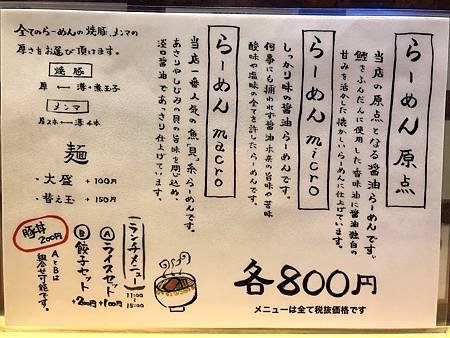 らーめん 原点
当店の原点となる醤油らーめんです。
鰹をふんだんに使用した香味油に醤油独自の
甘みを活かした懐かしいらーめんに仕上げています。
らーめん micro
しっかり味の醤油らーめんです。
何事にも捕われず醤油本来の旨味や苦味
酸味や塩味の全てを許したらーめんです。
らーめん macro
当店一番人気の魚”貝”系らーめんです。
あさりやしじみの貝の旨味を閉じ込め、
淡口醤油であっさり仕上げています。
全てのらーめんの焼豚、メンマの
厚さをお選び頂けます。
焼豚
厚 ⟷ 薄・煮玉子
メンマ
厚2本 ⟷ 薄4本
麺
・大盛 +100円
・替え玉 +150円
ランチメニュー
11:00〜15:00
Ⓐライスセット +100円
Ⓑ餃子セット +200円
AとBは
組合せ可能です。
豚丼
200円
各800円
メニューは全て税抜価格です